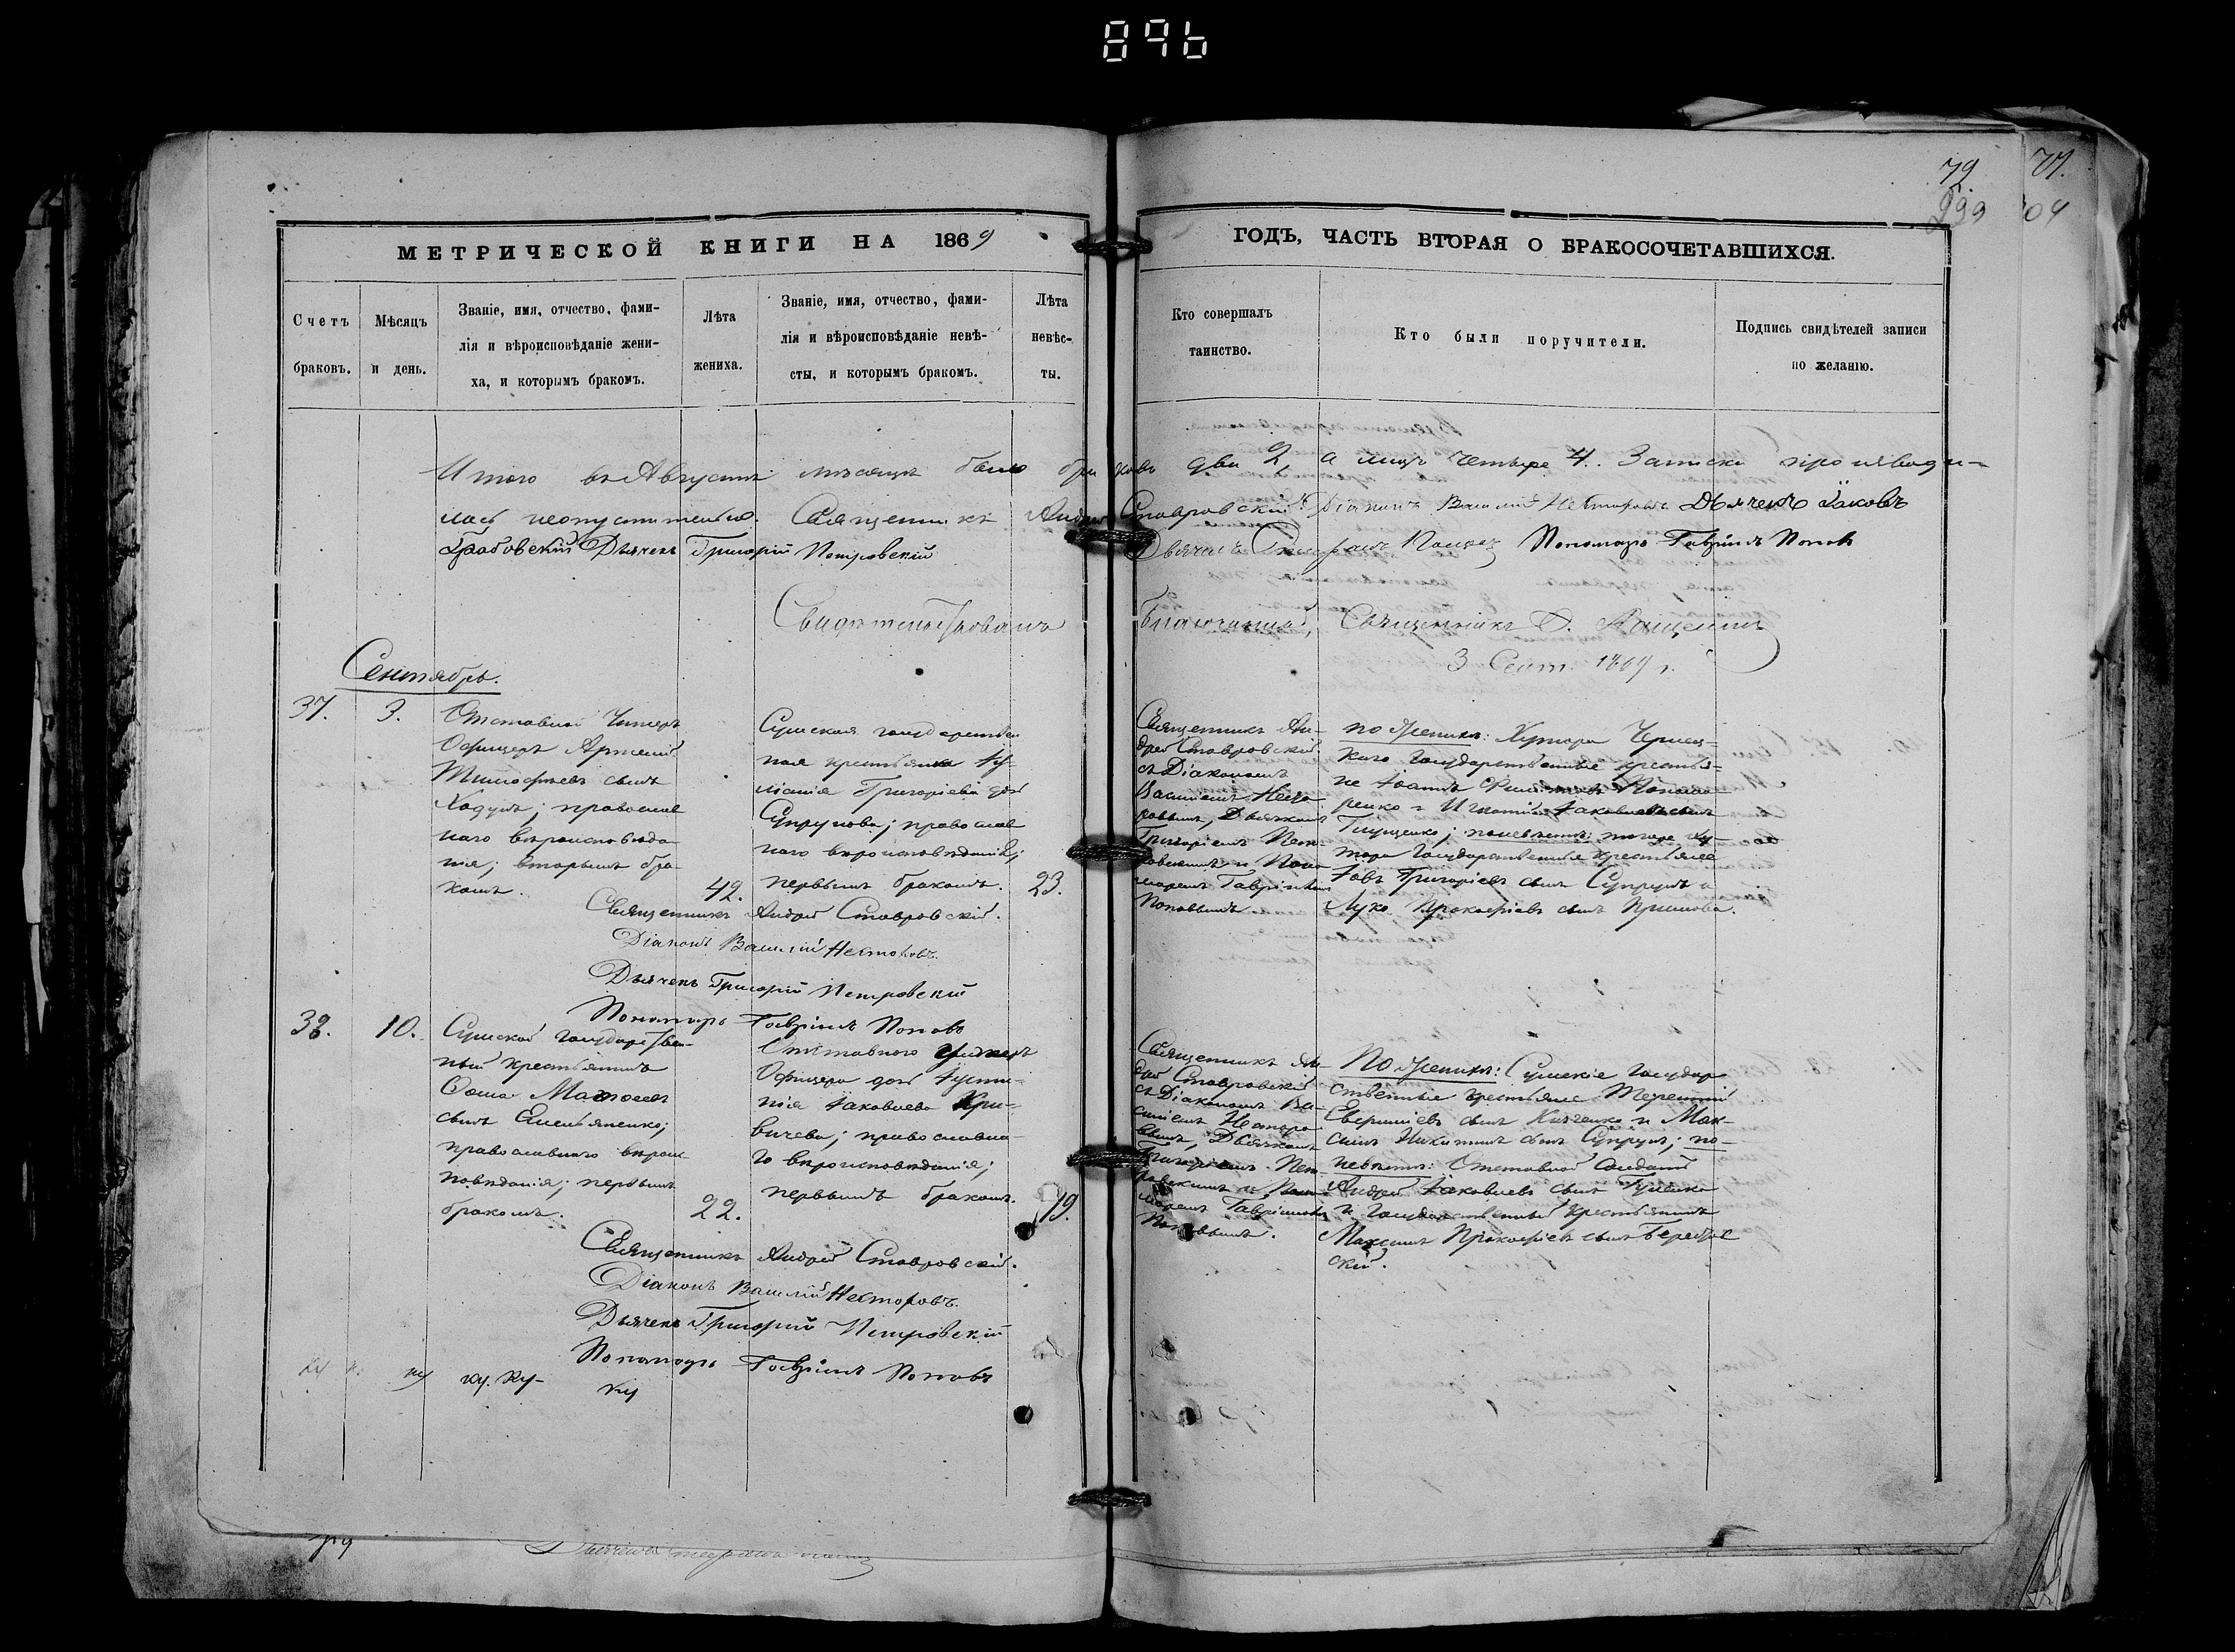 896
79.
299
71.
04
МЕТРИЧЕСКОЙ КНИГИ НА 1869
ГОДЪ, ЧАСТЬ ВТОРАЯ О БРАКОСОЧЕТАВШИХСЯ.
Счетъ
браковъ.
Мѣсяцъ
и день.
Званіе, имя, отчество, фами-
лія и вѣроисповѣданіе жени-
ха, и которымъ бракомъ.
Лѣта
жениха.
Званіе, имя, отчество, фами-
лія и вѣроисповѣданіе невѣ-
сты, и которымъ бракомъ.
Лѣта
невѣс-
ты.
Кто совершалъ
таинство.
Кто были поручители.
Подпись свидѣтелей записи
по желанію.
Итого въ Августѣ мѣсяцѣ было браковъ два 2, а лицъ четыре 4. Записка производи-
лась неопустительно. Священникъ Андрей Ставровскій Діаконъ Василій Несторовъ Дьячекъ Іаковъ
Грабовскій Дьячекъ Григорій Петровскій Дьячекъ Пономарь Гавріилъ Поповъ
Свидѣтельствовалъ Благочинный, Священникъ
3 Сент. 1869 г.
Сентябрь.
37.
3.
Отставной Унтеръ
Офицеръ Артемій
Тимофѣевъ сынъ
Ходунъ; православ
наго вѣроисповѣда
нія; вторымъ бра
комъ.
42.
Сумская государствен
ная крестьянка
Григоріева дочь
Супрунова; православ
наго вѣроисповѣданія;
первымъ бракомъ.
23.
Священникъ Ан-
дрей Ставровскій
съ Діакономъ
Василіемъ Несто
ровымъ, Дьячкомъ
Григоріемъ Пет-
ровскимъ и Поно-
маремъ Гавріиломъ
Поповымъ
по женихѣ: Хутора
каго Государственные крестья-
не Іоаннъ
ренко и Игнатій Іаковлевъ сынъ
Тищенко; по невѣстѣ: того же ху-
тора Государственные крестьяне
Іовъ Григоріевъ сынъ Супрунъ и
Лука Прокофіевъ сынъ
Священникъ Андрей Ставровскій.
Діаконъ Василій Несторовъ.
Дьячекъ Григорій Петровскій
Пономарь Гавріилъ Поповъ
38.
10.
Сумской государствен-
ный крестьянинъ
Ѳома
сынъ Емельяненко;
православнаго вѣроис-
повѣданія; первымъ
бракомъ.
22.
Отставного Унтеръ
Офицера дочь Іусти-
нія Іаковлева Кри-
вичева; православна-
го вѣроисповѣданія;
первымъ бракомъ.
19.
Священникъ Ан-
дрей Ставровскій
съ Діакономъ Ва-
силіемъ Несторо
вымъ, Дьячкомъ
Григоріемъ Пет-
ровскимъ и Поно-
маремъ Гавріиломъ
Поповымъ.
По женихѣ: Сумскіе Государ
ственные крестьяне Терентій
сынъ и Мак-
симъ Никитинъ сынъ Супрунъ; по
невѣстѣ: Отставной Солдатъ
Андрей Іаковлевъ сынъ
и Государственный крестьянинъ
Максимъ Прокофіевъ сынъ Берест
скій.
Священникъ Андрей Ставровскій.
Діаконъ Василій Несторовъ.
Дьячекъ Григорій Петровскій
Пономарь Гавріилъ Поповъ
ку ку. ку- ку